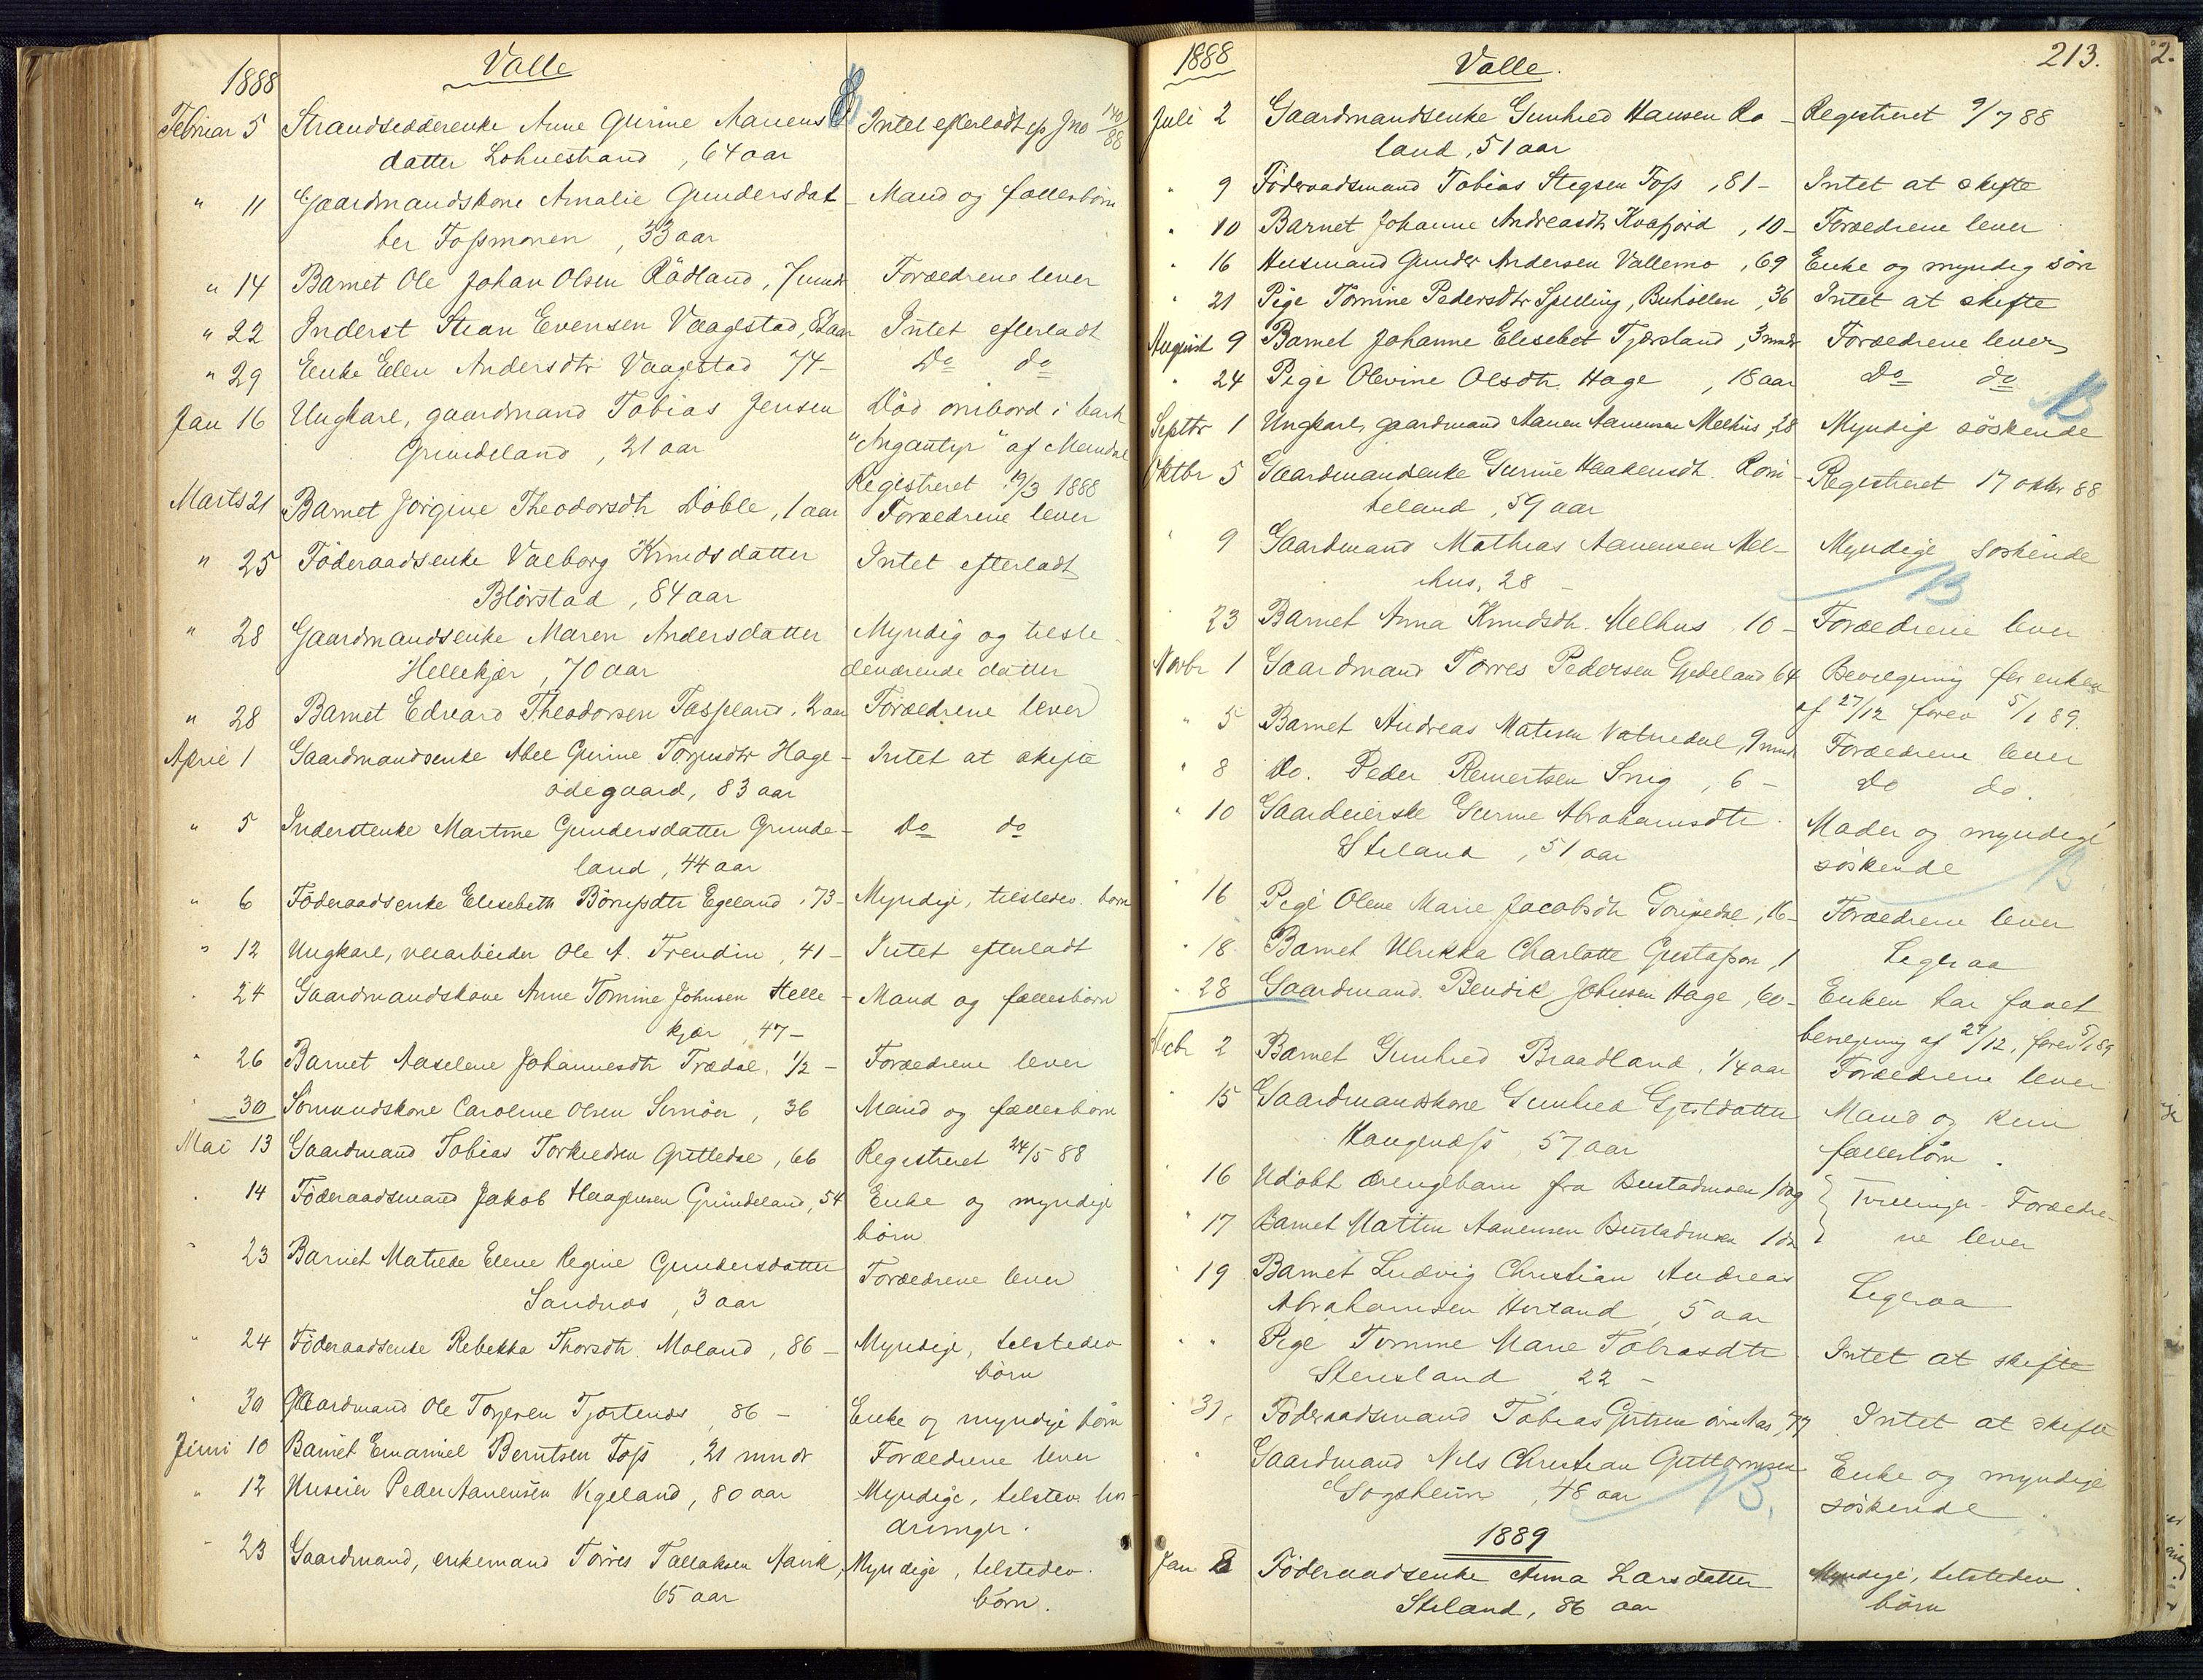 Valle
1888
Februar 5 Strandsidderenke Anne Gurine Aanens Intet efterladt cfr Jno 140/88
datter Lohnestrand, 64 aar
" 11 Gaardmandskone Amalie Gundersdat- Mand og fællesbørn
ter Fossmonen, 33 aar
" 14 Barnet Ole Johan Olsen Rødland, 7 mndr Forældrene lever
" 22 Inderst Stian Evensen Vaagestad, 82 aar Intet efterladt
" 29 Enke Ellen Andersdtr Vaagestad 74 - Do do
Jan 16 Ungkarl, gaardmand Tobias Jensen Død ombord i bark
Grundeland, 21 aar "Angantyr" af Mandal
Registreret 19/3 1888
Marts 21 Barnet Jörgine Theodorsdtr Døble, 1 aar Forældrene lever
" 25 Föderaadsenke Valborg Knudsdatter Intet efterladt
Blörstad, 84 aar
" 28 Gaardmandsenke Maren Andersdatter Myndig og tilste-
Hellekjær, 70 aar deværende datter
" 28 Barnet Edvard Theodorsen Fasseland, 2 aar Forældrene lever
April 1 Gaardmandsenke Abel Gurine Torjusdtr Hage- Intet at skifte
ödegaard, 83 aar
" 5 Inderstenke Martine Gundersdatter Grunde- Do do
land, 44 aar
" 6 Föderaadsenke Elisebeth Börupsdtr Egeland, 73 - Myndige, tilstedev. børn
" 12 Ungkarl, veiarbeider Ole A. Trendin, 41 - Intet efterladt
" 24 Gaardmandskone Anne Tomine Johnsen Helle- Mand og fællesbørn
kjær, 47 -
" 26 Barnet Aaselene Johannesdtr Trædal, 1/2 - Forældrene lever
" 30 Sømandskone Caroline Olsen Simöen, 36 Mand og fællesbörn
Mai 13 Gaardmand Tobias Torkildsen Gritledal, 66 Registreret 24/5 88
" 14 Föderaadsmand Jakob Haagensen Grundeland, 54 Enke og myndige
börn
" 23 Barnet Matilde Elene Regine Gundersdatter Forældrene lever
Sandnæs, 3 aar
" 24 Föderaadsenke Rebekka Thorsdtr Moland, 86 - Myndige, tilstedev
børn
" 30 Gaardmand Ole Torjesen Tjørtenæs, 86 - Enke og myndige børn
Juni 10 Barnet Emanuel Berntsen Foss, 21 mndr Forældrene lever
" 12 Huseier Peder Aanensen Vigeland, 80 aar Myndige, tilstev. liv-
arvinger.
" 23 Gaardmand, enkemand Torres Tallaksen Aavik, Myndige, tilstedev.
65 aar børn.
1888 Valle. 213.
Juli 2 Gaardmandsenke Gunhild Hansen Ro- Registreret 9/7 88
land, 51 aar
" 9 Föderaadsmand Tobias Stegsen Foss, 81 - Intet at skifte
" 10 Barnet Johanne Andreasdtr Kvafjord, 10 - Forældrene lever
" 16 Husmand Gunder Andersen Vallemo, 69 Enke og myndig sön
" 21 Pige Tomine Pedersdtr Spilling, Buhöllen, 36 Intet at skifte
August 9 Barnet Johanne Elisebet Fjæsland, 3 mndr Forældrene lever
" 24 Pige Olevine Olsdtr. Hage, 18 aar Do do
B
Septbr 1 Ungkarl, gaardmand Aanen Aanensen Melhus, 28 Myndige söskende
Oktbr 5 Gaardmandsenke Gurine Haakensdt. Rom- Registreret 17 oktbr 88
teland, 59 aar
" 9 Gaardmand Mathias Aanensen Mel- Myndige söskende
hus, 28 - B
23 Barnet Anna Knudsdtr. Melhus 10 - Forældrene lever
Novbr 1 Gaardmand Torres Pedersen Gjedeland 64 Bevilgning for enken
af 27/12 forev 5/1 89.
" 5 Barnet Andreas Matisen Vatnedal, 9 mndr Forældrene lever
" 8 Do. Peder Reinertsen Snig, 6 - Do do.
" 10 Gaardeierske Gurine Abrahamsdtr Moder og myndige
Stiland, 51 aar söskende
B
" 16 Pige Olene Marie Jacobsdtr , 16 - Forældrene lever
" 18 Barnet Ulrikka Charlotte Gustafson, 1 Ligesaa
" 28 Gaardmand Bendik Johnsen Hage, 60 - Enken har faaet
bevilgning af 27/12, forev 5/1 89
Decbr 2 Barnet Gunhild Braadland, 1/4 aar Forældrene lever
" 15 Gaardmandskone Gunhild Gjestdatter Mand og kun
57 aar fællesbörn.
" 16 Udöbt drengebarn fra Bustadmoen 1 dag Tvillinger - Forældre-
" 17 Barnet Martin Aanensen Bustadmoen 1 da ne lever
" 19 Barnet Ludvig Christian Andreas Ligesaa
Abrahamsen Hortand, 5 aar
" " Pige Tomine Marie Tobiasdtr Intet at skifte
Stensland 22 -
" 31, Föderaadsmand Tobias , 77 Intet at skifte
" Gaardmand Nils Christian Guttormsen Enke og myndige
Gogsheim, 48 aar B. söskende
1889
Jan 8 Föderaadsenke Anna Larsdatter Myndige, tilstedev.
Stiland, 86 aar børn